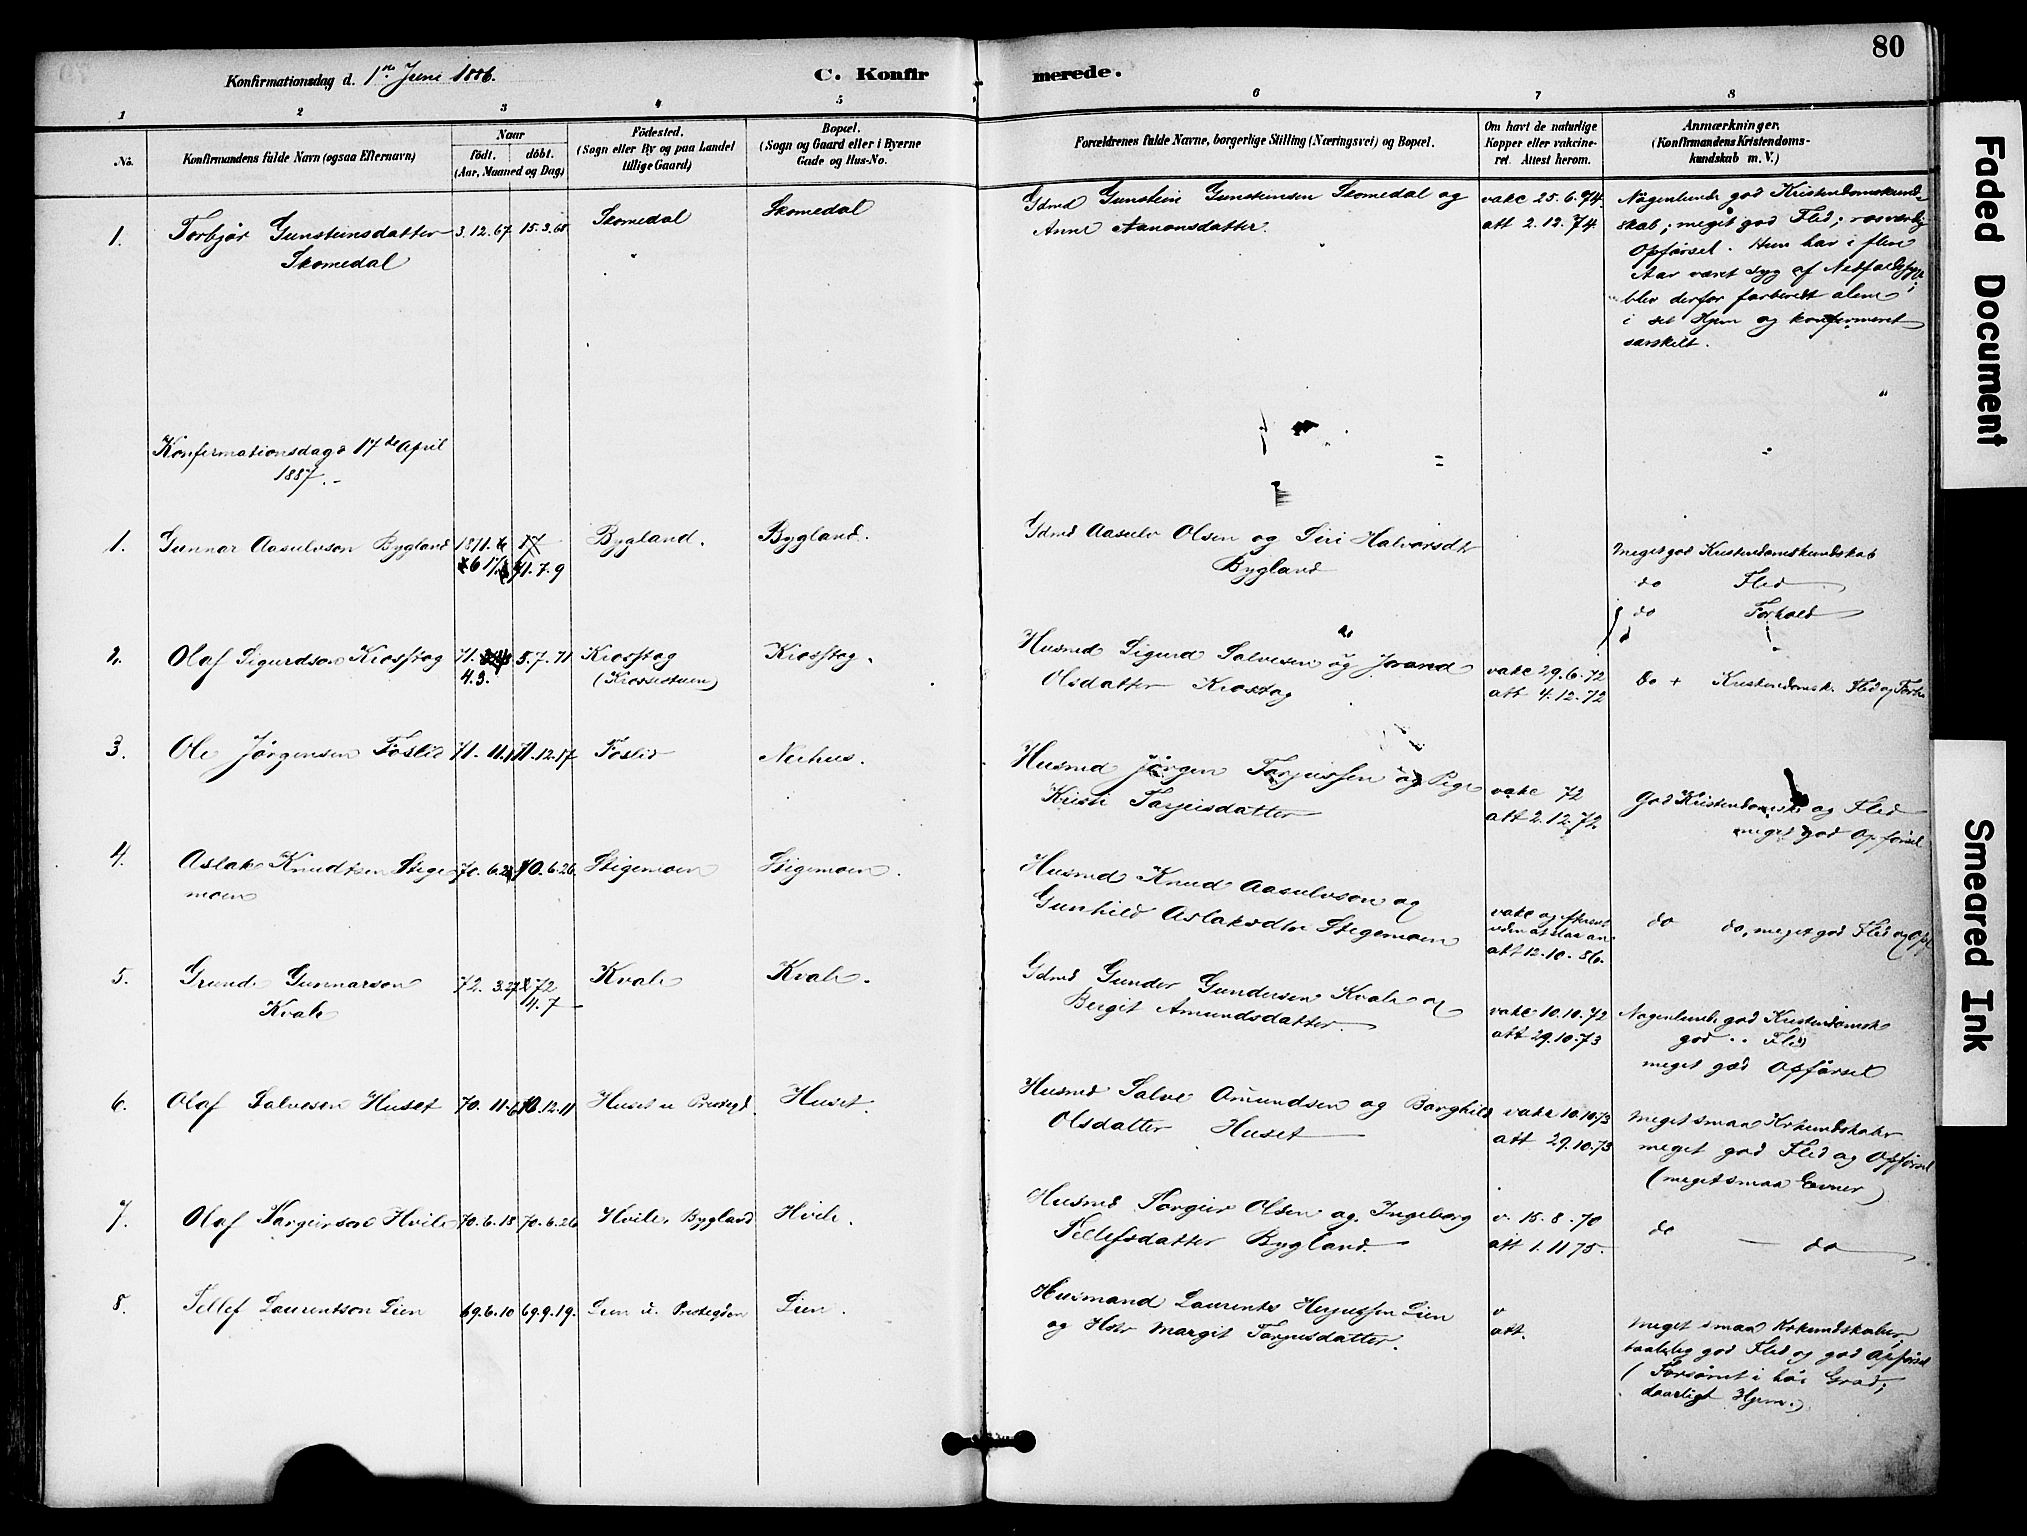 80
Konfirmationsdag d. 1ste Juni 1886.
C. Konfirmerede.
1 2 3 4 5 6 7 8
No.
Konfirmandens fulde Navn (ogsaa Efternavn)
Naar
födt, döbt.
(Aar, Maaned og Dag)
Födested.
(Sogn eller By og paa Landet
tillige Gaard)
Bopæl.
(Sogn og Gaard eller i Byerne
Gade og Hus-No.
Forældrenes fulde Navne, borgerlige Stilling (Næringsvei) og Bopæl.
Om havt de naturlige
Kopper eller vakcineret. Attest herom.
Anmærkninger.
(Konfirmandens Kristendomskundskab m. V.)
1. Torbjør Gunsteinsdatter
Skomedal
3.12.67 15.3.68
Skomedal
Skomedal
Gdmd Gunstein Gunsteinsen Skomedal og
Anne Aanonsdatter.
vakc 25.6.74.
att 2.12.74.
Nogenlunde god Kristendomskundskab; meget god Flid;
Opførsel. Hun har i flere
Aar været syg af
blev derfor forberedt alene
i sit Hjem og konfirmeret
særskilt.
Konfirmationsdag 17de April
1887.
1. Gunnar Aasulvson Bygland
71.7.9
Bygland.
Bygland.
Gdmd Aasulv Olsen og Siri Halvorsdtr
Bygland
Meget god Kristendomskundskab
do Flid
do Forhold
2. Olaf Sigurdson Krosstog
71.
4.3.
5.7.71
Krosstog
(Krossestuen)
Krosstog.
Husmd Sigurd Salvesen og Jorand
Olsdatter Krostog
vakc 29.6.72
att 4.12.72
do + Kristendomsk. Flid og
3. Ole Jørgensen Foslid
71.11. 71.12.17
Foslid
Neihus.
Husmd Jørgen Torjussen og Pige
Kristi Tarjeisdatter
vakc 72
att 2.12.72
God Kristendomsk og Flid
meget god Opførsel
4. Aslak Knudtsen Stigemoen
70.6. 70.6.26.
Stigemoen
Stigemoen.
Husmd Knud Aasulvson og
Gunhild Aslaksdtr Stegemoen
vakc og
uden at slaa an
att 12.10.86.
do do, meget god Flid og
5. Gunde Gunnarson
Kvale
72.3. 72
4.7
Kvale
Kvale.
Gdmd Gunder Gundersen Kvale og
Bergit Amundsdatter.
vakc 10.10.72
att 29.10.73
Nogenlunde god Kristendomsk
god Flid
meget god Opførsel
6. Olaf Salvesen Huset
70.11. 70.12.11
Huset u. Prestegd
Huset.
Husmd Salve Amundsen og Borghild
Olsdatter Huset
vakc 10.10.73
att 29.10.73
Meget smaa Krkundskaber
meget god Flid og Opførsel
(meget smaa Evner)
7. Olaf Torgeirson Hvile
70.6.13 70.6.26
Hvile, Bygland
Hvile.
Husmd Torgeir Olsen og Ingeborg
Tellefsdatter Bygland.
v. 15.8.70
att 1.11 75.
do — do
8. Tellef Laurentson Lien
69.6.10 69.9.19.
Lien u. Prestegden
Lien.
Husmand Laurents Lien
og Hstr Margit Torjusdatter.
v
att.
Meget smaa Krkundskaber,
taalelig god Flid og god Opførsel
(Forsømt i høi Grad;
daarligt Hjem.)
Faded Document
Smeared Ink